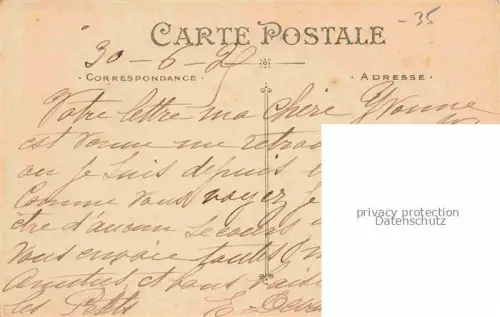 -35
CARTE POSTALE
30-6-2
CORRESPONDANCE
ADRESSE
Votre lettre ma chère Yvonne
est venue me retrou
ou je suis depuis
Comme vous voyez je
être d'aucun secours
vous envoie toutes
Amitiés, et vous
les Petits E
privacy protection
Datenschutz